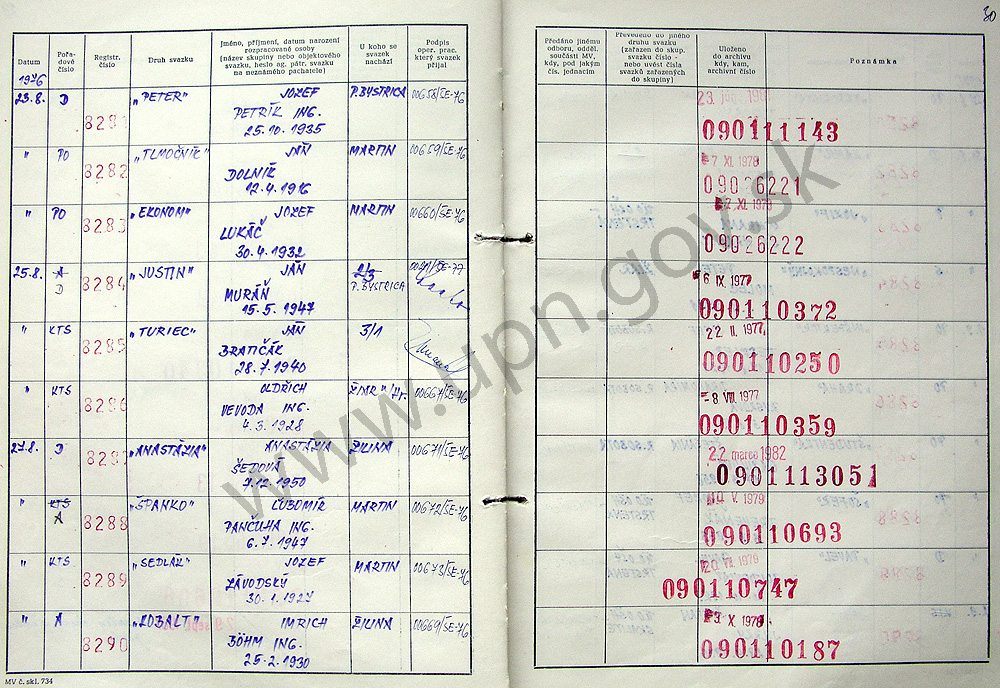 30
Datum
Pořa-
dové
číslo
Registr.
číslo
Druh svazku
Jméno, příjmení, datum narození
rozpracované osoby
(název skupiny nebo objektového
svazku, heslo ag. pátr. svazku
na neznámého pachatele)
U koho se
svazek
nachází
Podpis
oper. prac.
který svazek
přijal
Předáno jinému
odboru, odděl.
součásti MV,
kdy, pod jakým
čís. jednacím
Převedeno do jiného
druhu svazku
(zařazen do skup.
svazku číslo -
nebo uvést čísla
svazků zařazených
do skupiny)
Uloženo
do archivu
kdy, kam,
archivní číslo
Poznámka
1976
23.8. D 8281 „PETER" JOZEF P.BYSTRICA 00658/ŠE-76
PETRÍK ING.
25.10.1935
090111143
" PO 8282 „TLMOČNÍK" JÁN MARTIN 00659/ŠE-76 7 XI. 1978
DOLNÍK
12.4.1916
09026221
" PO 8283 „EKONOM" JOZEF MARTIN 00660/ŠE-76 XI. 1978
LUKÁČ
30.4.1932
09026222
25.8. A 8284 „JUSTIN" JÁN 2/3 6 IX. 1977
D P.BYSTRICA
MURÁŇ
15.5.1947
090110372
" KTS 8285 „TURIEC" JÁN 3/1 22 II. 1977
BRATIČÁK
28.7.1940
090110250
" KTS 8286 OLDŘICH 00667/ŠE-76 8 VIII. 1977
VEVODA ING.
4.3.1928
090110359
27.8. D 828 „ANASTÁZIA" ANASTÁZIA ŽILINA 00671/ŠE-76 22 marca 1982
ŠEDOVÁ
7.12.1950
0901113051
" KTS 8288 „ŠPANKO" ĽUBOMÍR MARTIN 00672/ŠE-76 V. 1979
A
PANČUHA ING.
6.7.1947
090110693
" KTS 8289 „SEDLÁK" JOZEF MARTIN 00673/ŠE-76 1979
ZÁVODSKÝ
30.1.1927
090110747
" A 8290 „KOBALT" IMRICH ŽILINA 00669/ŠE-76 3 X. 1978
BÖHM ING.
25.2.1930
090110187
MV č. skl. 734
www.upn.gov.sk